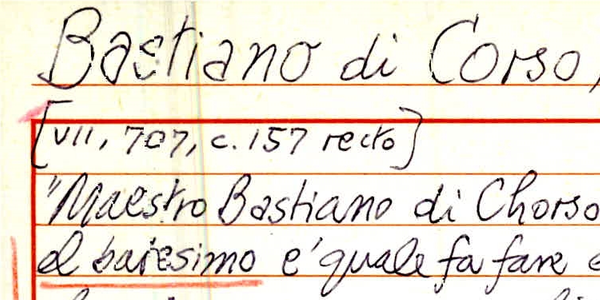 Bastiano di Corso,
[VII, 707, c. 157 recto]
"Maestro Bastiano di Chorso
el baresimo e' quale fa fare